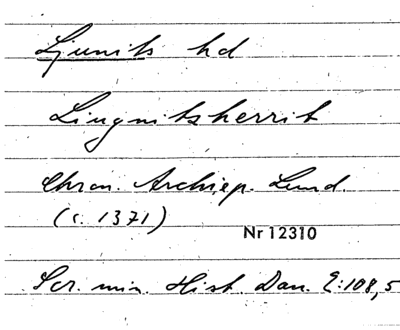 Ljunits hd
Liugnitsherrit
Chron. Archiep. Lund.
(c. 1371)
Nr 12310
Scr. min. Hist. Dan. 2:108,5